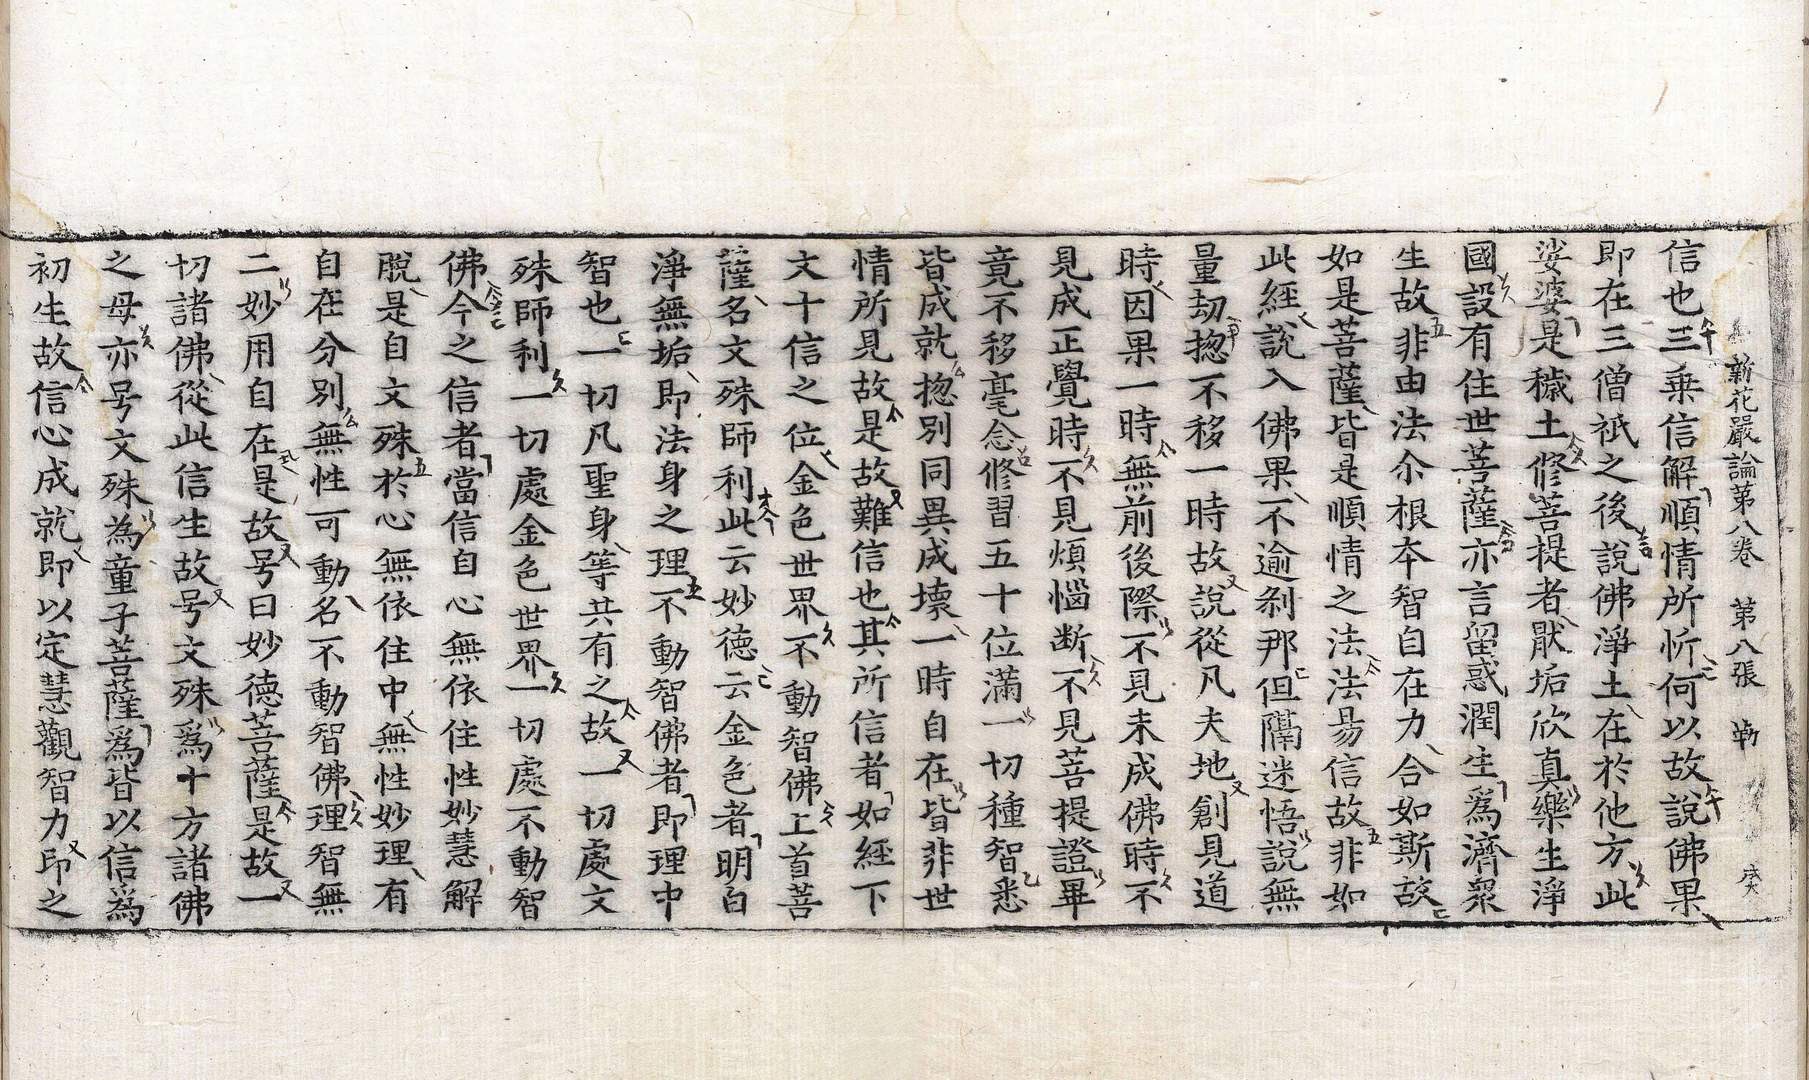 新花嚴論第八卷　第八張　勒
信也三乗信解順情所忻何以故說佛果
即在三僧祇之後說佛淨土在於他方此
娑婆是穢土修菩提者猒垢欣真樂生淨
國設有住世菩薩亦言留惑潤生爲濟衆
生故非由法尒根本智自在力合如斯故
如是菩薩皆是順情之法法易信故非如
此經說入佛果不逾剎那但隔迷悟說無
量劫揔不移一時故說從凡夫地創見道
時因果一時無前後際不見未成佛時不
見成正覺時不見煩惱断不見菩提證畢
竟不移毫念修習五十位滿一切種智悉
皆成就揔別同異成壞一時自在皆非世
情所見故是故難信也其所信者如經下
文十信之位金色世界不動智佛上首菩
薩名文殊師利此云妙德云金色者明白
淨無垢即法身之理不動智佛者即理中
智也一切凡聖身等共有之故一切處文
殊師利一切處金色世界一切處不動智
佛今之信者當信自心無依住性妙慧解
脫是自文殊於心無依住中無性妙理有
自在分別無性可動名不動智佛理智無
二妙用自在是故号曰妙德菩薩是故一
切諸佛從此信生故号文殊爲十方諸佛
之母亦号文殊為童子菩薩爲皆以信爲
初生故信心成就即以定慧觀智力印之